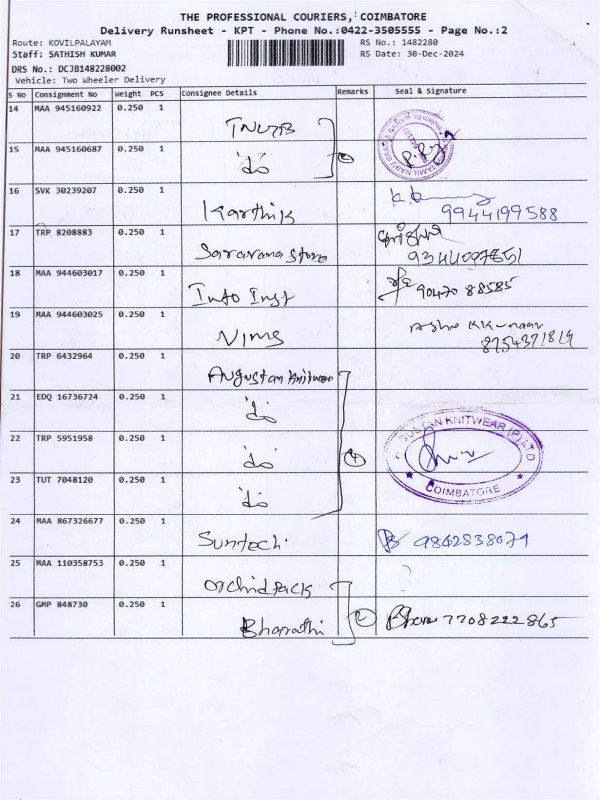 THE PROFESSIONAL COURIERS, COIMBATORE
Delivery Runsheet - KPT - Phone No.:0422-3505555 - Page No.:2
Route: KOVILPALAYAM RS No.: 1482280
Staff: SATHISH KUMAR RS Date: 30-Dec-2024
DRS No.: DCJB148228002
Vehicle: Two Wheeler Delivery
S No Consignment No Weight PCS Consignee Details Remarks Seal & Signature
14 MAA 945160922 0.250 1
15 MAA 945160687 0.250 1 'do
16 SVK 30239207 0.250 1 Karthik 9944199588
17 TRP 8208883 0.250 1 Saravana Store
18 MAA 944603017 0.250 1 Info Inst 90470 88585
19 MAA 944603025 0.250 1 NIMS
20 TRP 6432964 0.250 1
21 EDQ 16736724 0.250 1 'do
22 TRP 5951958 0.250 1 'do 4 KNITWEAR (P) LTD
23 TUT 7048120 0.250 1 'do COIMBATORE
24 MAA 867326677 0.250 1 Suntech 9842838079
25 MAA 110358753 0.250 1 Orchid Pack
26 GMP 848730 0.250 1 Bharathi 2 7708222865